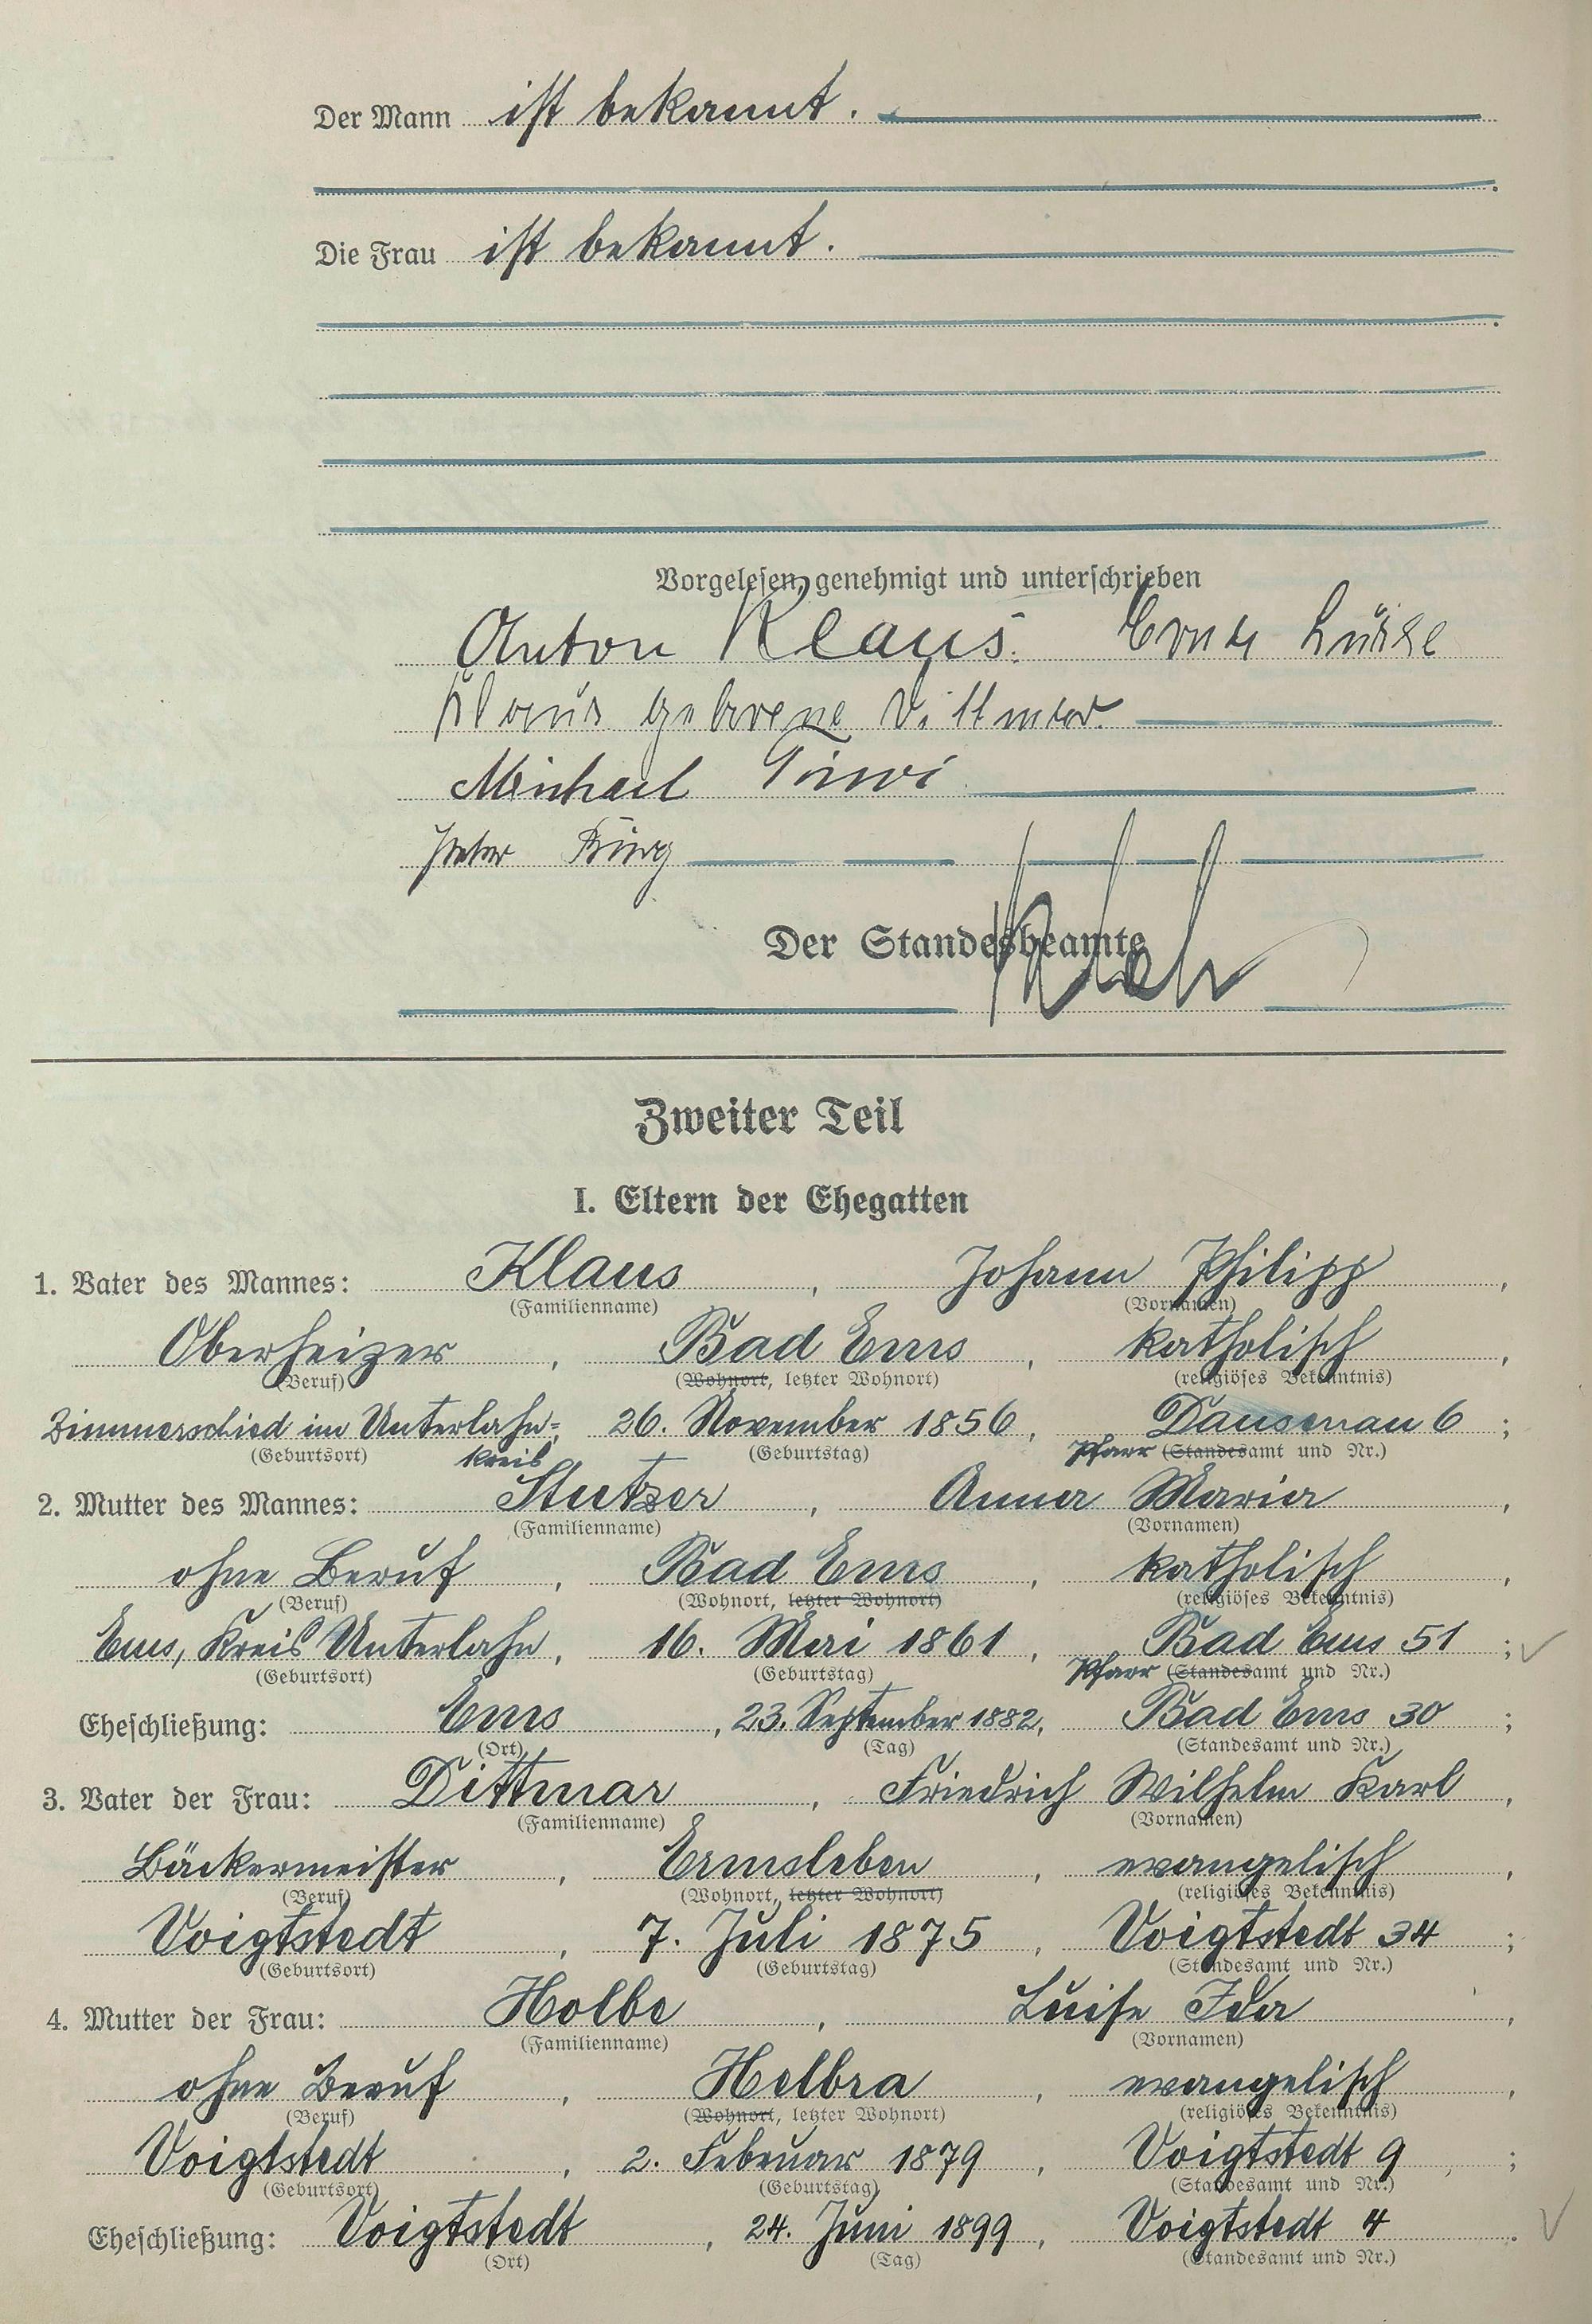 Der Mann ist bekannt.
Die Frau ist bekannt.
Vorgelesen, genehmigt und unterschrieben
Anton Klaus.
Klaus geborene Dittmar.
Michael
Peter
Der Standesbeamte
Zweiter Teil
I. Eltern der Ehegatten
1. Vater des Mannes: Klaus, Johann Philipp,
(Familienname) (Vornamen)
Oberheizer, Bad Ems, katholisch,
(Beruf) (Wohnort, letzter Wohnort) (religiöses Bekenntnis)
Zimmerschied im Unterlahn-, 26. November 1856, Dausenau 6;
(Geburtsort) kreis (Geburtstag) Pfarr (Standesamt und Nr.)
2. Mutter des Mannes: Stutzer, Anna Maria,
(Familienname) (Vornamen)
ohne Beruf, Bad Ems, katholisch,
(Beruf) (Wohnort, letzter Wohnort) (religiöses Bekenntnis)
Ems, Kreis Unterlahn, 16. Mai 1861, Bad Ems 51;
(Geburtsort) (Geburtstag) Pfarr (Standesamt und Nr.)
Eheschließung: Ems, 23. September 1882, Bad Ems 30;
(Ort) (Tag) (Standesamt und Nr.)
3. Vater der Frau: Dittmar, Friedrich Wilhelm Karl,
(Familienname) (Vornamen)
Bäckermeister, Ermsleben, evangelisch,
(Beruf) (Wohnort, letzter Wohnort) (religiöses Bekenntnis)
Voigtstedt, 7. Juli 1875, Voigtstedt 34;
(Geburtsort) (Geburtstag) (Standesamt und Nr.)
4. Mutter der Frau: Holbe, Luise Ida,
(Familienname) (Vornamen)
ohne Beruf, Helbra, evangelisch,
(Beruf) (Wohnort, letzter Wohnort) (religiöses Bekenntnis)
Voigtstedt, 2. Februar 1879, Voigtstedt 9;
(Geburtsort) (Geburtstag) (Standesamt und Nr.)
Eheschließung: Voigtstedt, 24. Juni 1899, Voigtstedt 4.
(Ort) (Tag) (Standesamt und Nr.)